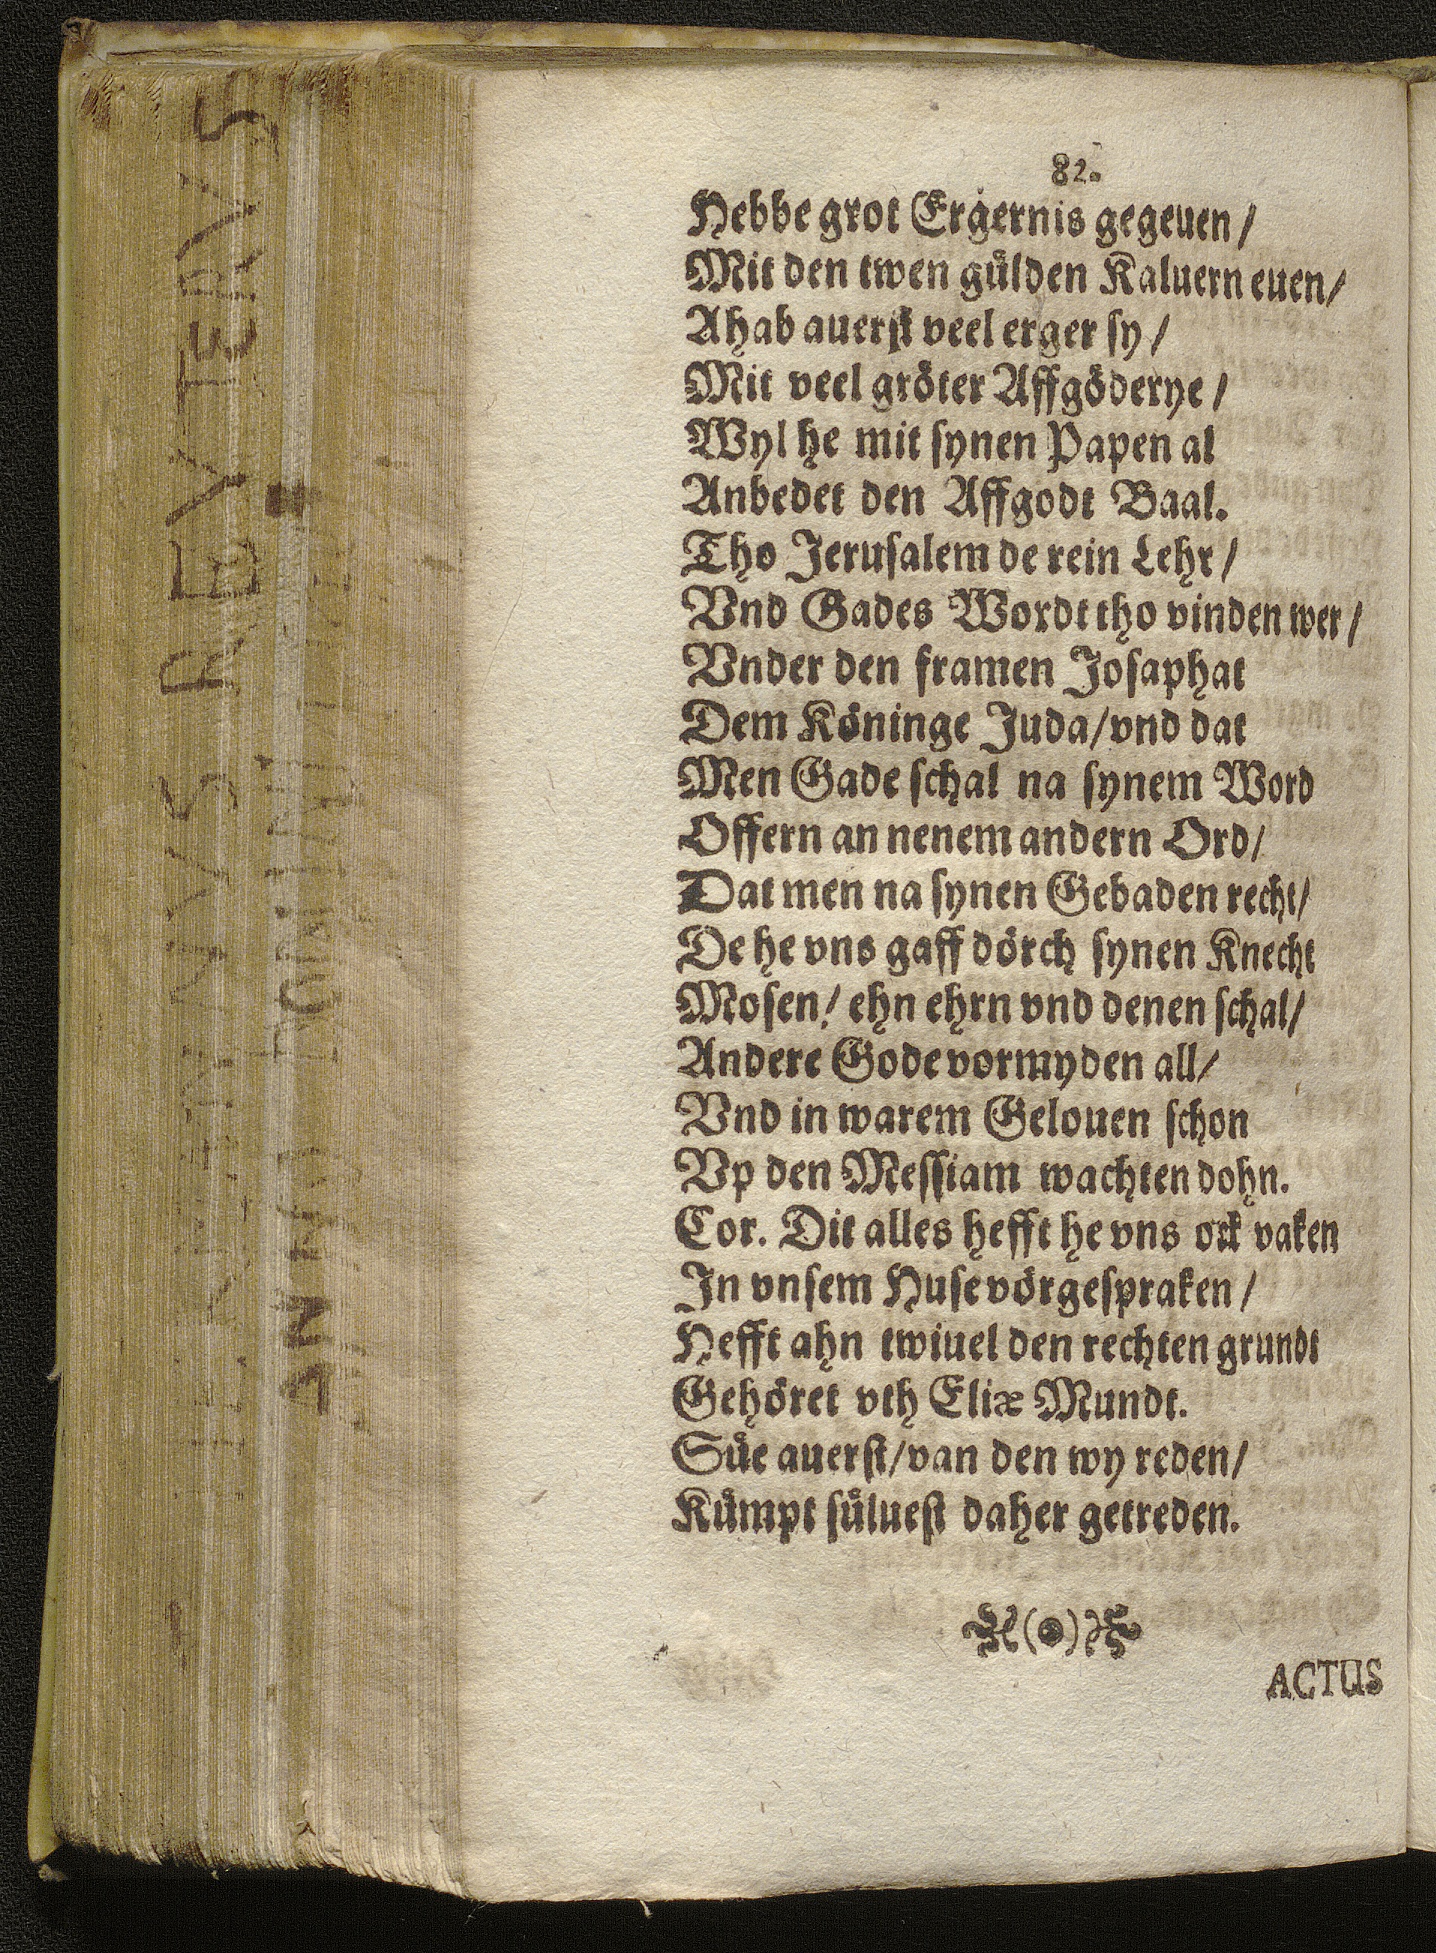 82.
Hebbe grot Ergernis gegeuen /
Mit den twen gülden Kaluern euen /
Ahab auerſt veel erger ſy /
Mit veel gröter Affgöderye /
Wyl he mit ſynen Papen al
Anbedet den Affgodt Baal.
Tho Jeruſalem de rein Lehr /
Vnd Gades Wordt tho vinden wer /
Vnder den framen Joſaphat
Dem Köninge Juda / vnd dat
Men Gade ſchal na ſynem Word
Offern an nenem andern Ord /
Dat men na ſynen Gebaden recht /
De he vns gaff dörch ſynen Knecht
Moſen / ehn ehrn vnd denen ſchal /
Andere Gode vormyden all /
Vnd in warem Gelouen ſchon
Vp den Meſſiam wachten dohn.
Cor. Dit alles hefft he vns ock vaken
In vnſem Huſe vörgeſpraken /
Hefft ahn twiuel den rechten grundt
Gehöret vth Eliæ Mundt.
Süe auerſt / van den wy reden /
Kümpt ſülueſt daher getreden.
ACTUS